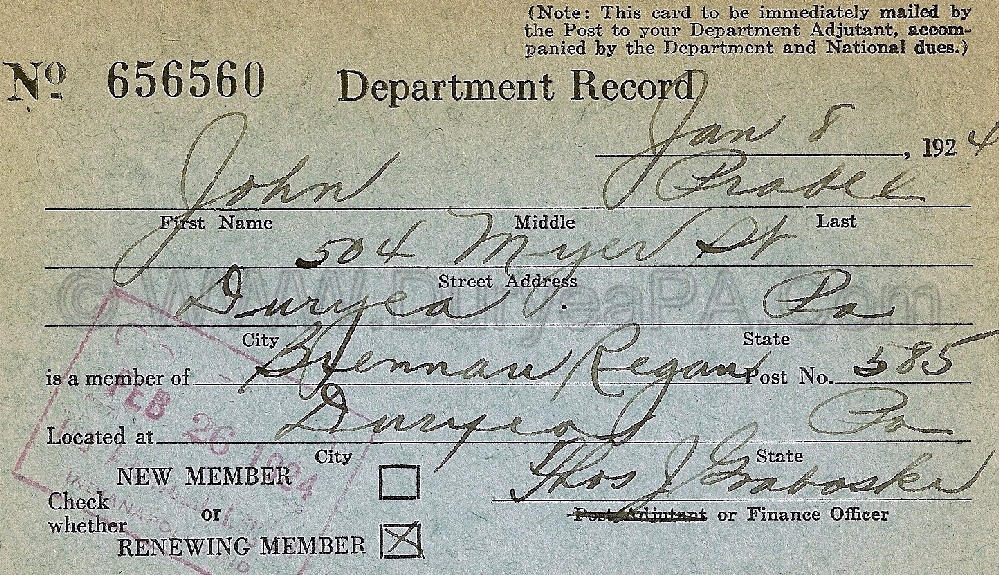 (Note: This card to be immediately mailed by
the Post to your Department Adjutant, accom-
panied by the Department and National dues.)
Nº 656560 Department Record
Jan 8, 1924
John
First Name Middle Last
504 Myer St
Street Address
Duryea. Pa
City State
is a member of Brennan Regan Post No. 585
Located at Duryea Pa
City State
Thos J Graboske
Post Adjutant or Finance Officer
Check whether
NEW MEMBER
or
RENEWING MEMBER
FEB 26 1924
© www.DuryeaPA.com